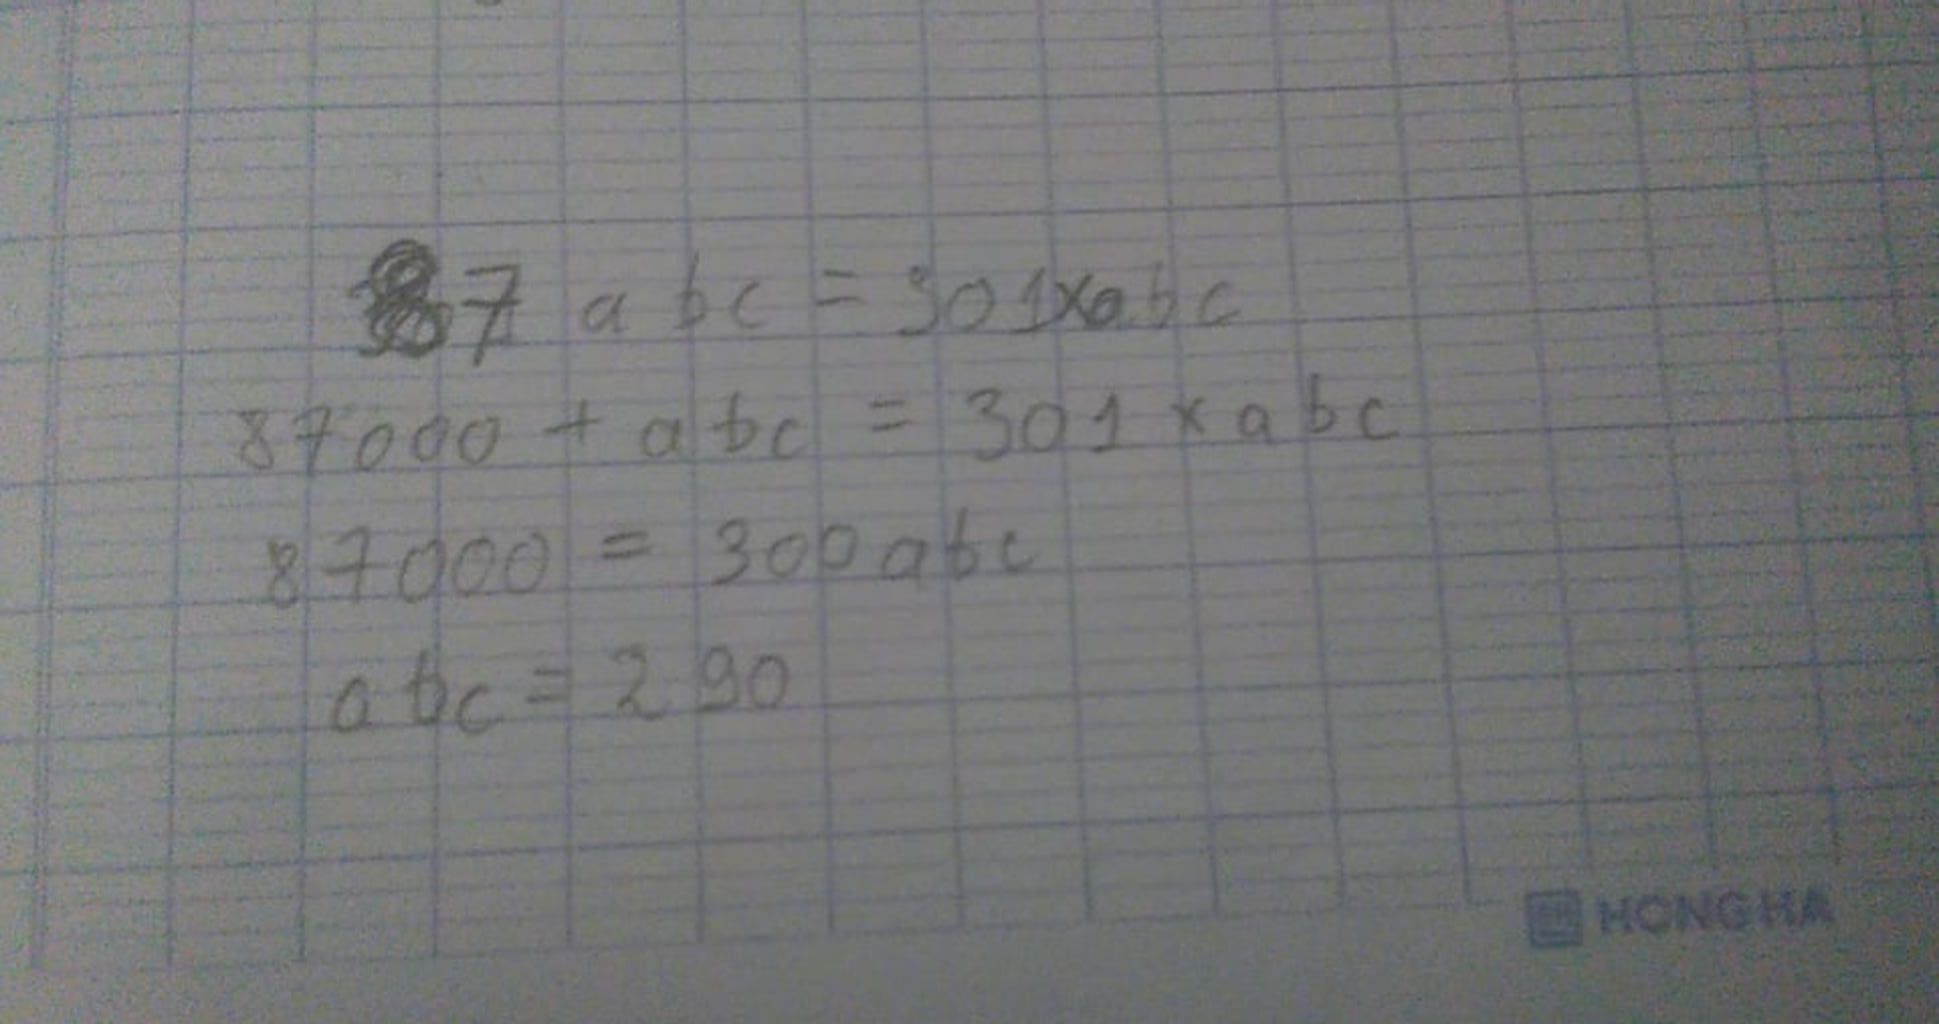 87 abc = 301xabc
87000 + abc = 301 x abc
87000 = 300abc
abc = 290
HONG HA